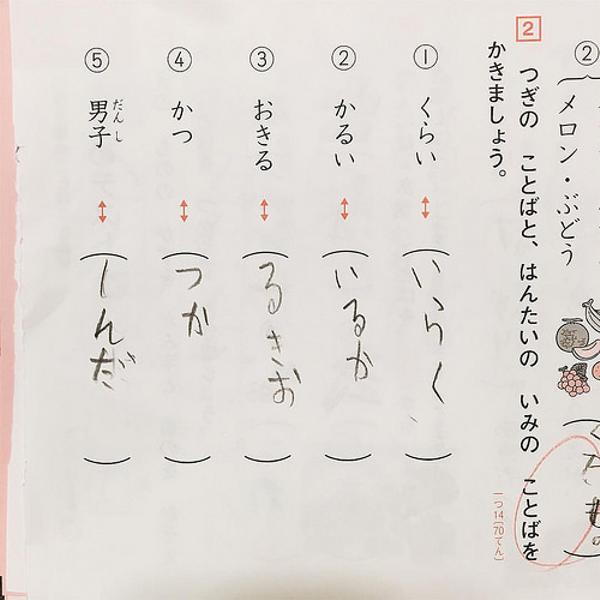 ②
メロン・ぶどう
2 つぎの ことばと、はんたいの いみの ことばを
かきましょう。
一つ14〔70てん〕
① くらい ↔ (いらく)
② かるい ↔ (いるか)
③ おきる ↔ (るきお)
④ かつ ↔ (つか)
⑤ 男子 ↔ (しんだ)
だんし